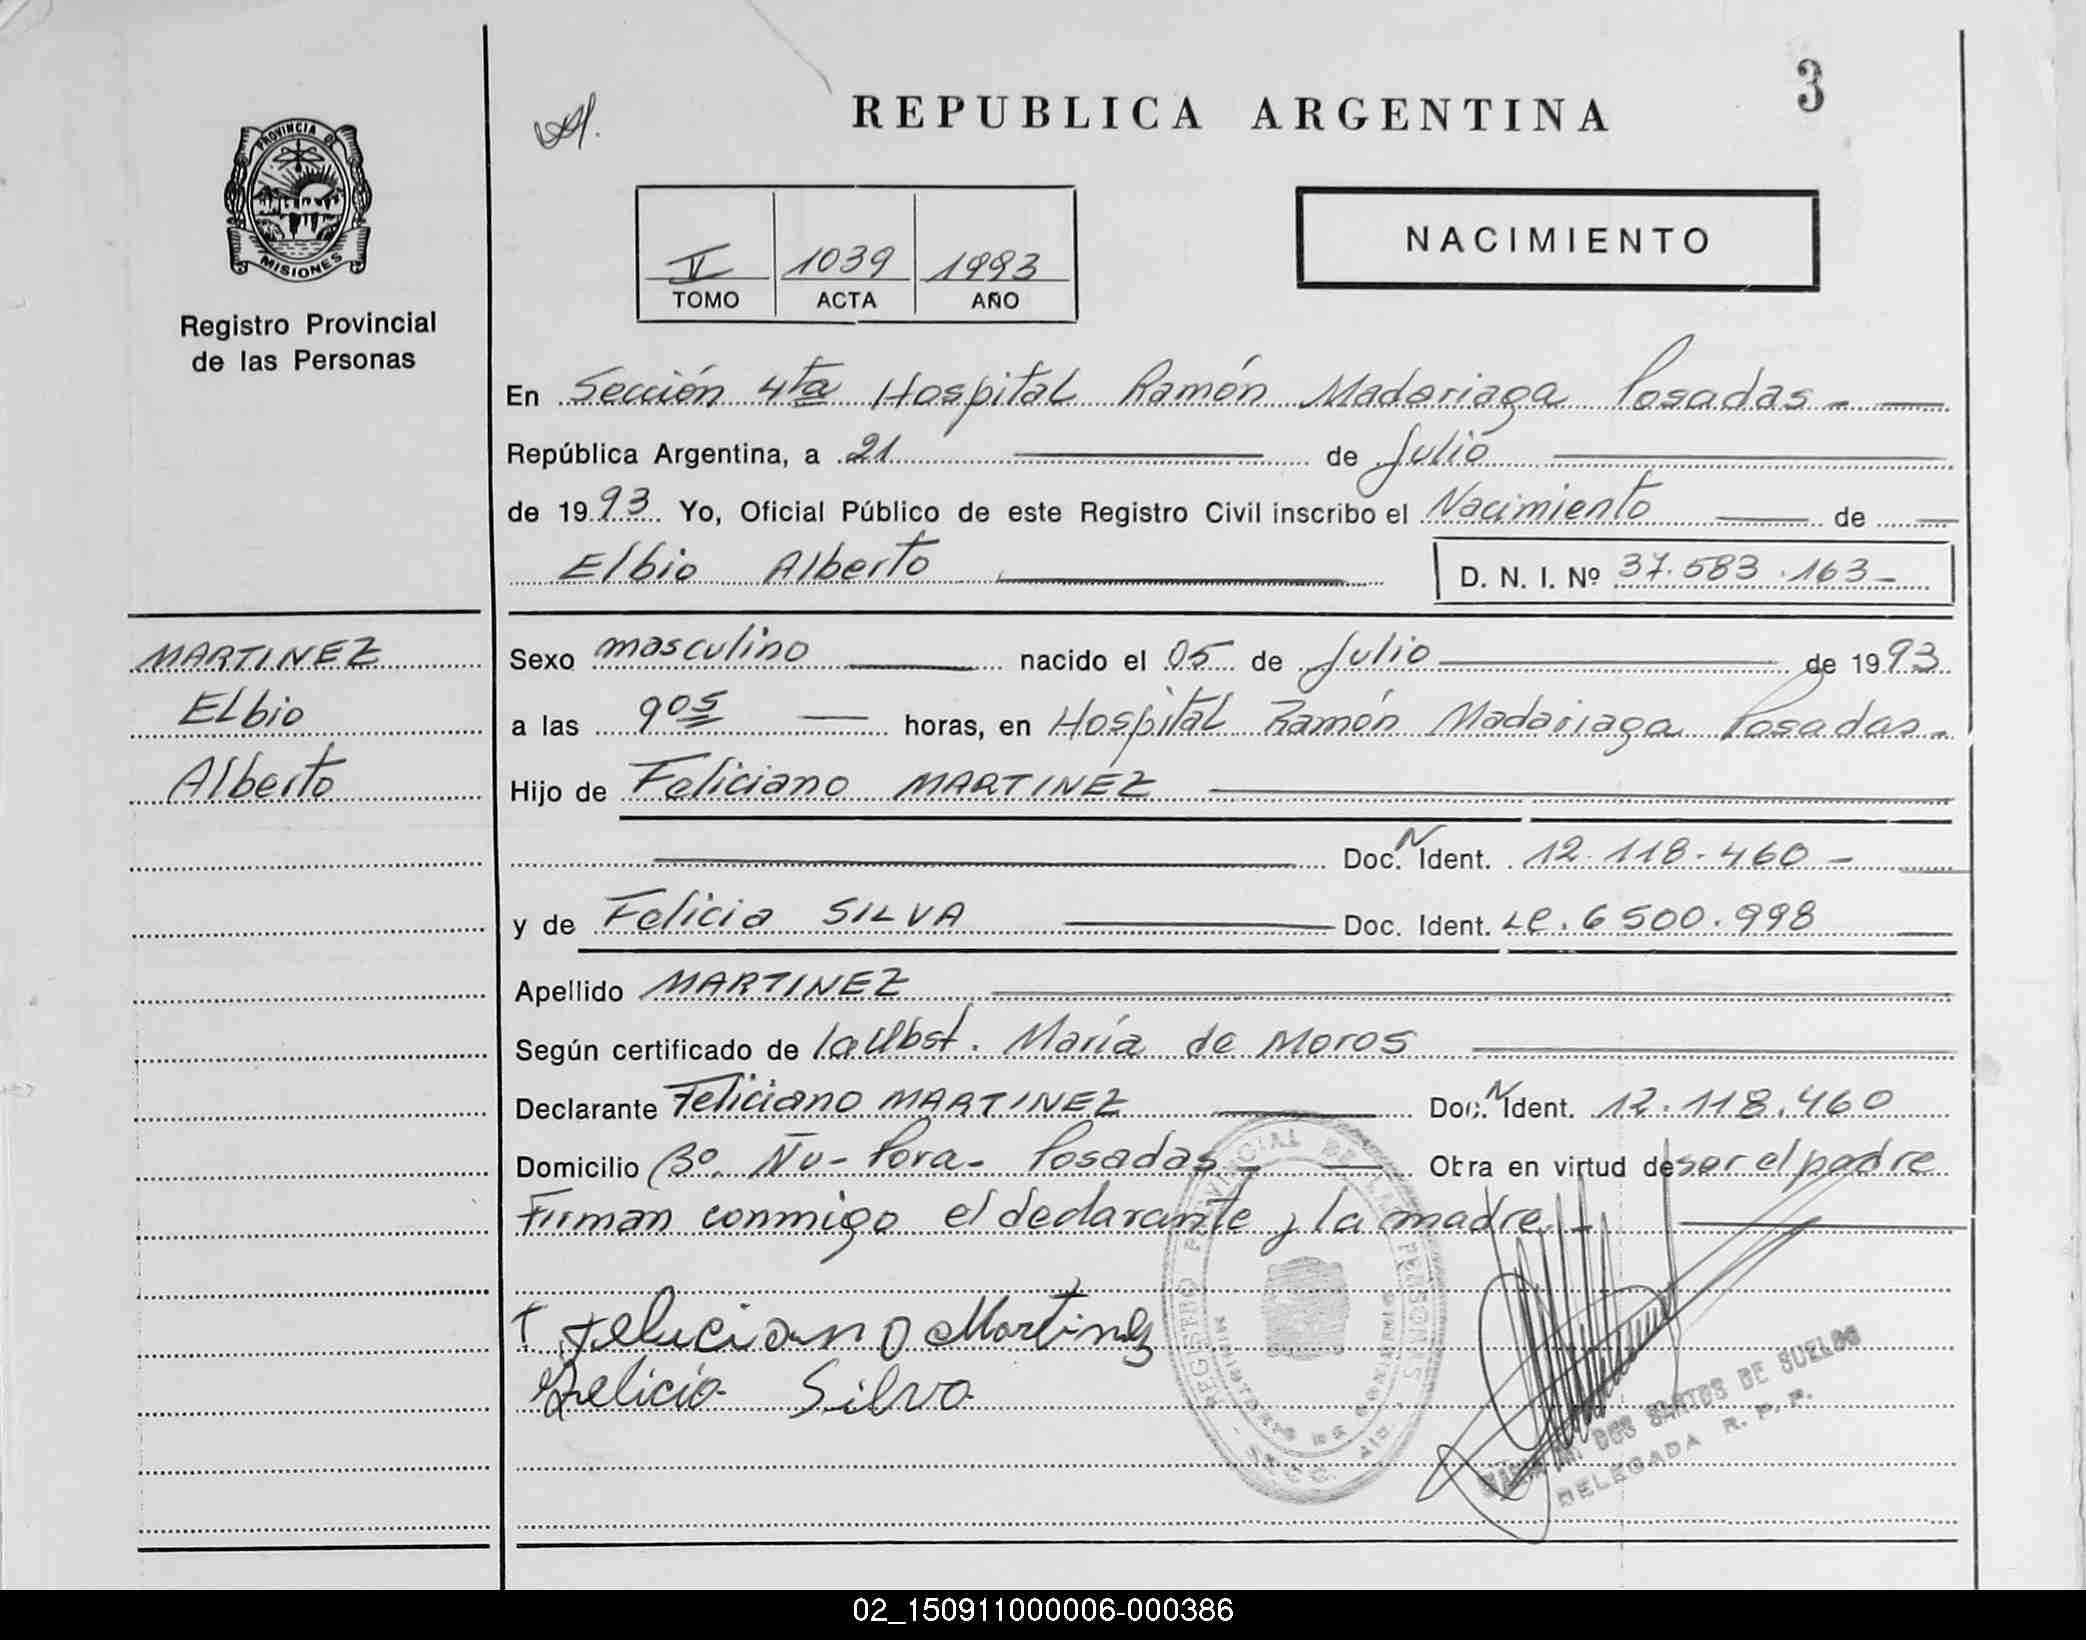 3
REPUBLICA ARGENTINA
PROVINCIA DE
MISIONES
Registro Provincial
de las Personas
V 1039 1993
TOMO ACTA AÑO
NACIMIENTO
En Sección 4ta Hospital Ramón Madariaga Posadas
República Argentina, a 21 de Julio
de 1993 Yo, Oficial Público de este Registro Civil inscribo el Nacimiento de
Elbio Alberto D. N. I. Nº 37.583.163
MARTINEZ
Elbio
Alberto
Sexo masculino nacido el 05 de Julio de 1993
a las 9 05 horas, en Hospital Ramón Madariaga Posadas
Hijo de Feliciano MARTINEZ
Doc. N Ident. 12.118.460
y de Felicia SILVA Doc. Ident. LC. 6 500.998
Apellido MARTINEZ
Según certificado de la Obst. María de Moros
Declarante Feliciano MARTINEZ Doc. N Ident. 12.118.460
Domicilio Bº Ñu-Pora- Posadas Obra en virtud de ser el padre
Firman conmigo el declarante y la madre
Feliciano Martinez
Felicia Silva
REGISTRO PROVINCIAL DE LAS PERSONAS
MINISTERIO DE GOBIERNO
DOS SANTOS DE SUELOS
DELEGADA R. P. P.
02_150911000006-000386